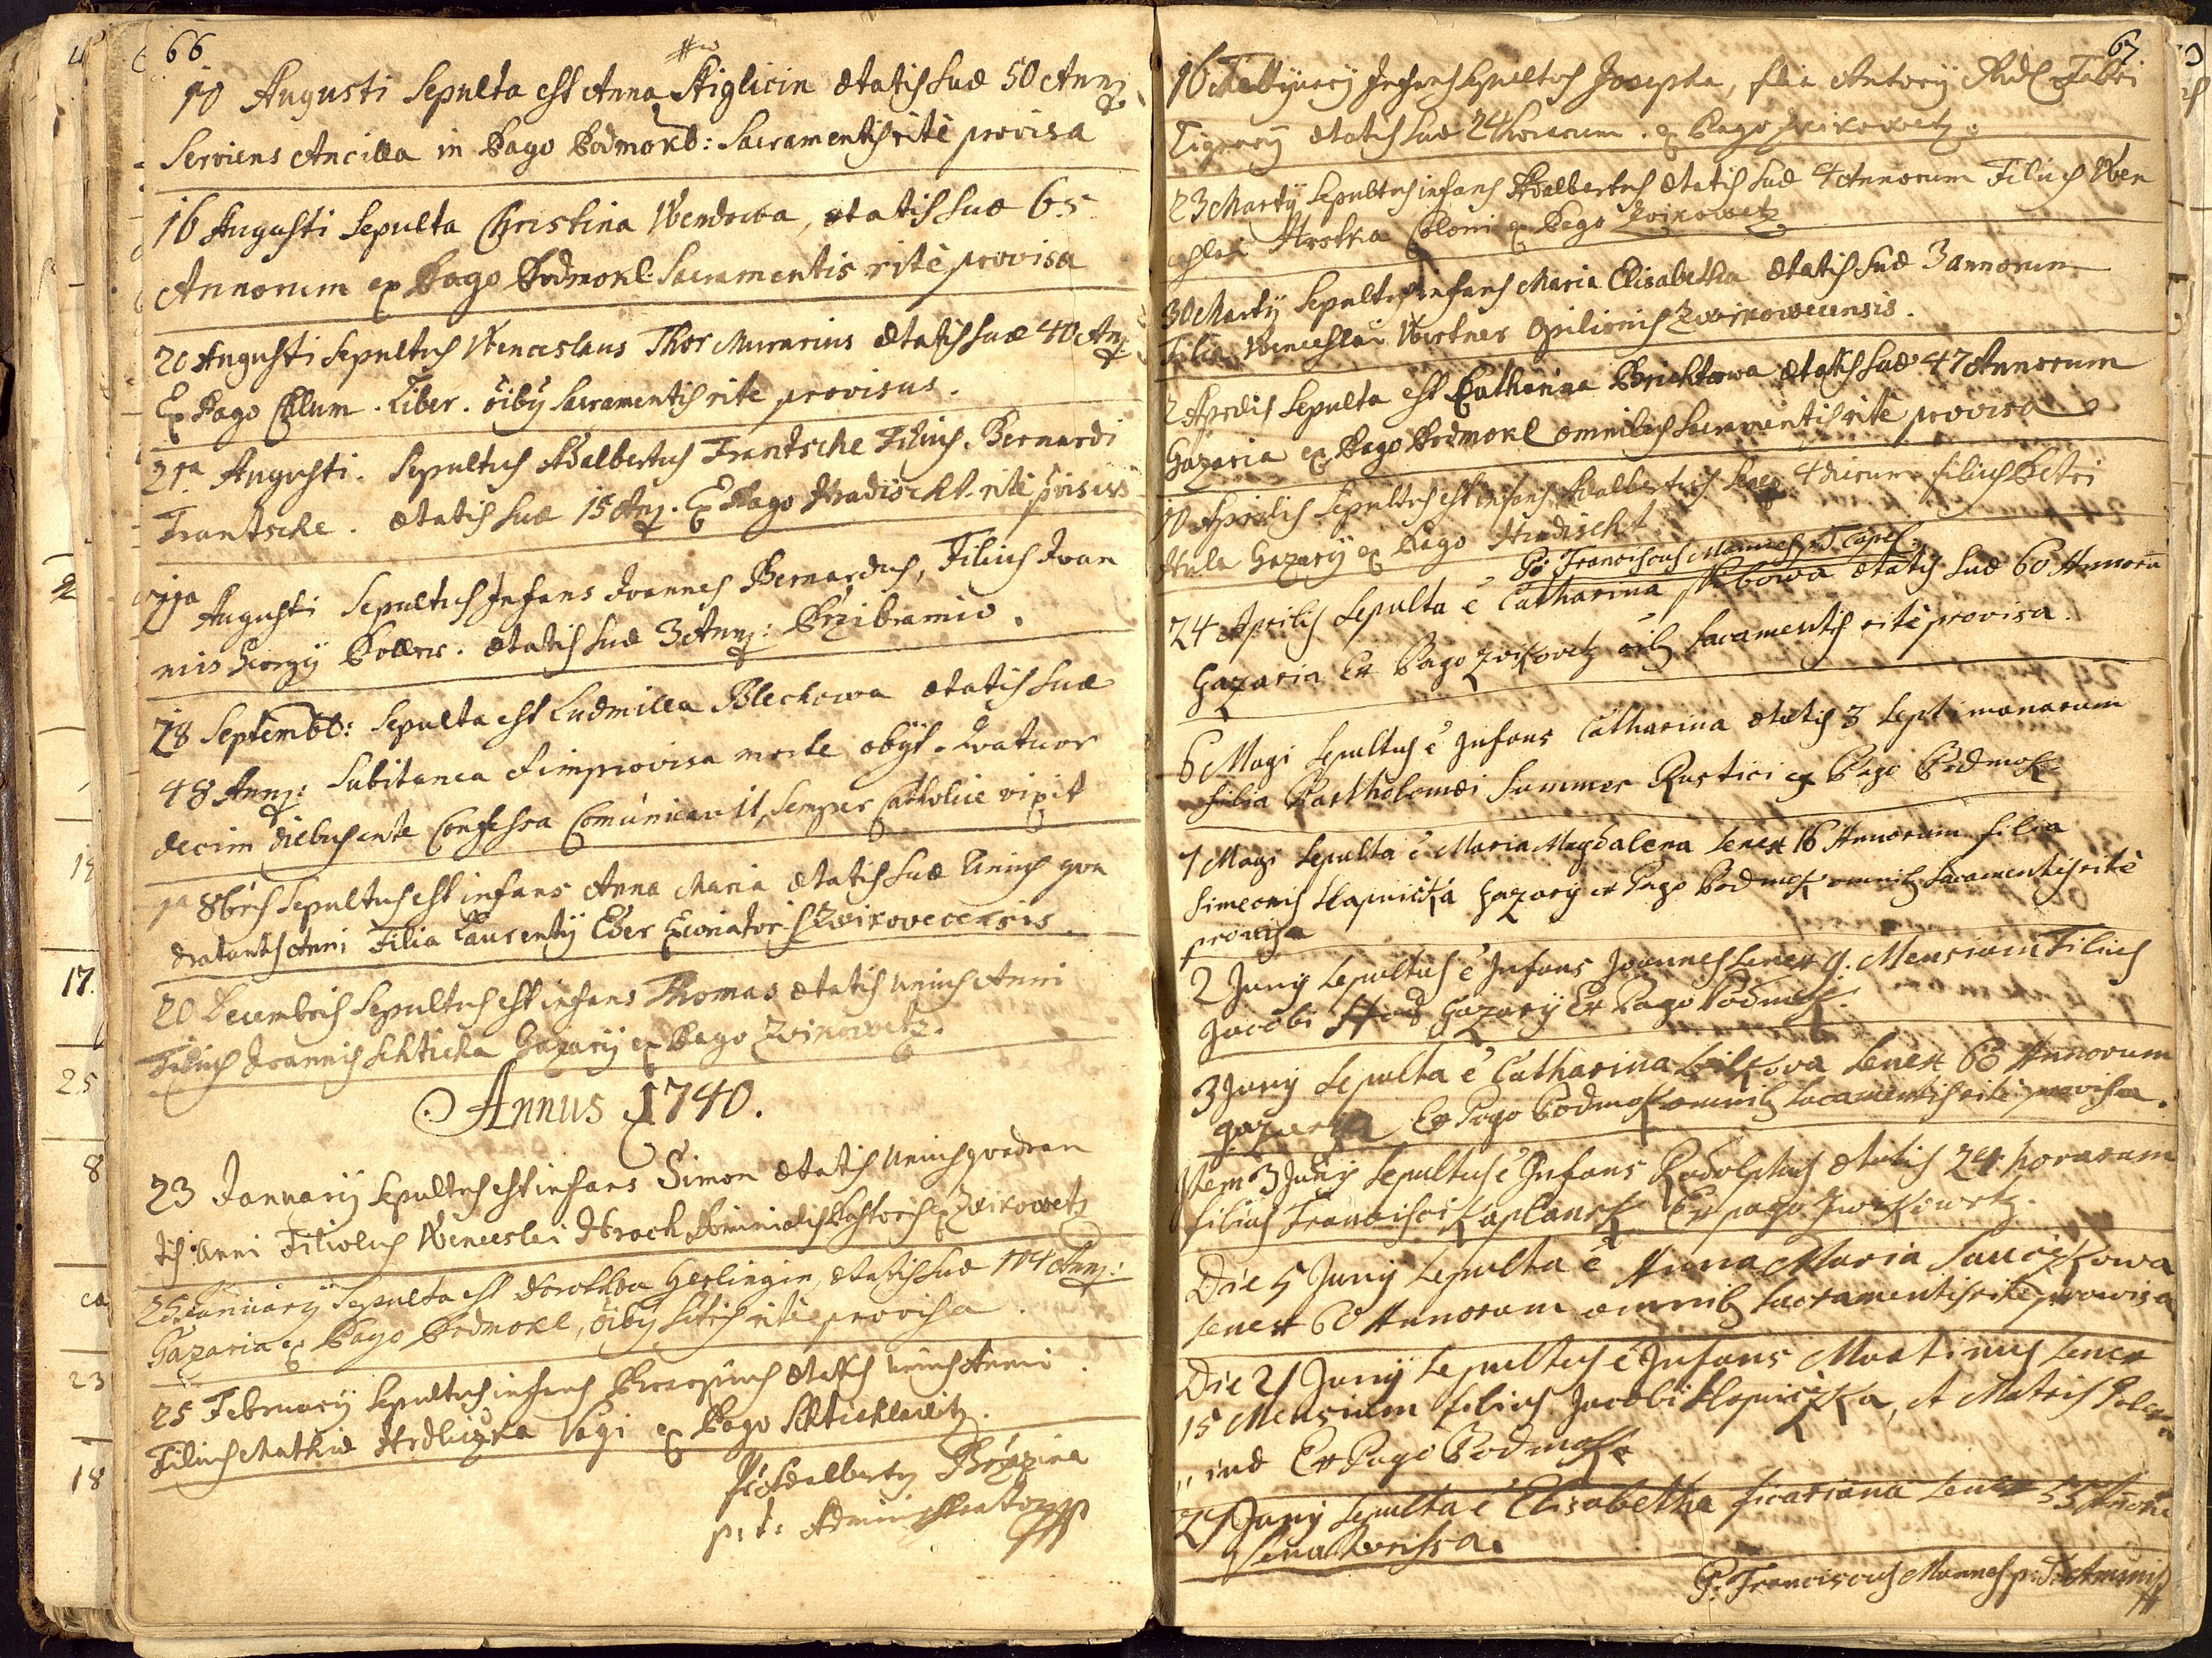 66
10 Augusti Sepulta est Anna Stiglicin ætatis suæ 50 Annor
Serviens Ancilla in Pago Podmokl: Sacramentis ritè provisa
16 Augusti Sepulta Christina Wendowa, ætatis suæ 65
Annorum ex Pago Podmokl Sacramentis ritè provisa
20 Augusti Sepultus Wenceslaus Thor Murarius ætatis suæ 40 An
Ex Pago Chlum. Liber. oibꝰ Sacramentis rite provisus.
21a Augusti. Sepultus Adalbertus Frantsche Filius Bernardi
Frantsche. ætatis suæ 15 An. Ex Pago Hradischt ritè
Augusti Sepultus Infans Joannes Bernardus, Filius Joan
nis Georgij ætatis suæ 3 Ann: Przibramio.
28 Septemb: Sepulta est Ludmilla Blechowa ætatis suæ
48 Ann: Subitanea & improvisa morte obijt. Quatuor
decim diebus ante Confessa Comunicavit, semper Catholice vixit
1a 8bris Sepultus est infans Anna Maria ætatis suæ unius qua
drantis Anni Filia Laurentij Eder Zwikovecensis
20 Decembris Sepultus est infans Thomas ætatis unius Anni
Filius Joannis Schticka Gazarij ex Pago Zwikowetz.
Annus 1740.
23 Januarij Sepultus est infans Simon ætatis unius quadran
tis Anni Filiolus Wenceslai Hroch Dominialis Pastoris ex Zwikowetz
25 Januarij Sepulta est Dorothea Gerlingin, ætatis suæ 104 Ann:
Gazaria ex Pago Podmokl, oibꝰ ritè provisa.
25 Februarij Sepultus infans ætatis unius Anni.
Filius Mathiæ Hrdliczka Vagi ex Pago
P: Adalbertꝰ Brzezina
p: t: Administrator
67
16 Februarij Infans Sepultus Josepha, filia Antonij Fabri
Lignarij ætatis suæ 24 horarum. ex Pago Zwikowetz.
23 Martij Sepultus infans Adalbertus ætatis suæ 4 Annorum Filius Wen
ceslai Hrstka Coloni ex Pago Zwikowetz
30 Martij Sepultus infans Maria Elisabetha ætatis suæ 3 annorum
Filia Wenceslai Wertner Opilionis Zwikowecensis.
2 Aprilis Sepulta est Catharina ætatis suæ 47 Annorum
Gazaria ex Pago Podmokl omnibus Sacramentis ritè provisa
10 Aprilis Sepultus est infans Adalbertus senex 4 dierum filius Petri
Hula Gazarij ex Pago Hradischt
P: Franciscus Mannes p: T: Capel.
24 Aprilis Sepulta ē Catharina ætatis suæ 60 Annorū
Gazaria Ex Pago Zwikovetz oib Sacamentis ritè provisa.
6 Maji Sepultus ē Infans Catharina ætatis 3 Septimanarum
filia Bartholomæi Summer Rustici ex Pago Podmok
7 Maji Sepulta ē Maria Magdalena senex 16 Annorum filia
Simeonis Slapniczka Gazarij ex Pago Podmok omnib Sacamentis ritè
provisa
2 Junij Sepultus ē Infans Joannes senex 9. Mensium Filius
Jacobi Gazarij Ex Pago Podmok.
3 Junij Sepulta ē Catharina senex 60 Annorum
Ex Pago Podmok omnib Sacamentis ritè provisa.
Item 3 Junij Sepultus ē Infans Rudolphus ætatis 24 horarum
filius Francisci Kaplanek Ex pago Zwikowetz.
Die 5 Junij Sepulta ē Anna Maria
senex 60 Annorum omnib Sacramentis ritè provisa
Die 21 Junij Sepultus ē Infans Martinus senex
15 Mensium filius Jacobi Slapniczka, et Matris
Ex Pago Podmok
Junij Sepulta ē Elisabetha ficariana senex 55 Annorū
P: Franciscus Mannes p: T: Administ